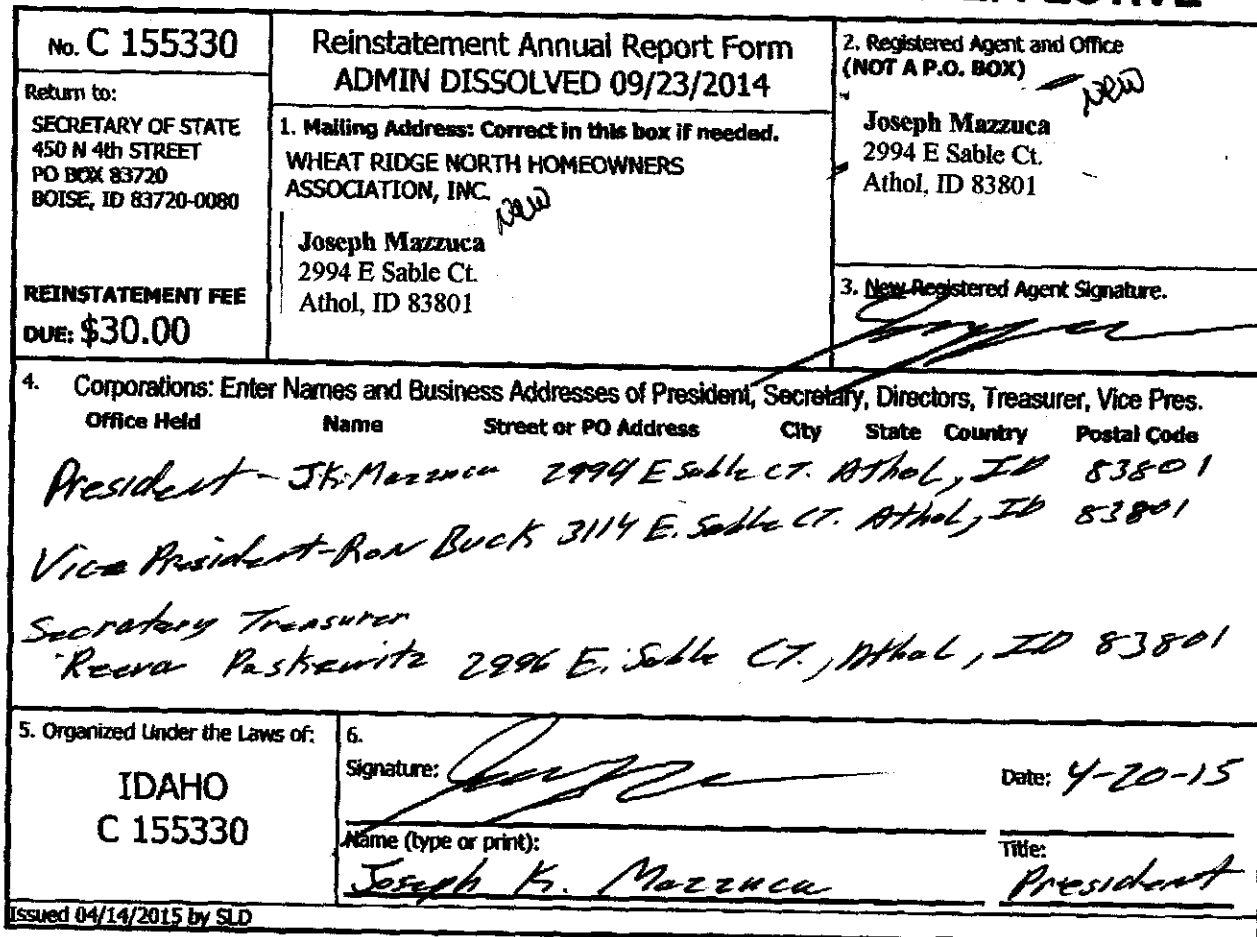 No. C 155330
Return to:
SECRETARY OF STATE
450 N 4th STREET
PO BOX 83720
BOISE, ID 83720-0080
REINSTATEMENT FEE
DUE: $30.00
Reinstatement Annual Report Form
ADMIN DISSOLVED 09/23/2014
1. Mailing Address: Correct in this box if needed.
WHEAT RIDGE NORTH HOMEOWNERS
ASSOCIATION, INC.
new
Joseph Mazzuca
2994 E Sable Ct.
Athol, ID 83801
2. Registered Agent and Office
(NOT A P.O. BOX)
new
Joseph Mazzuca
2994 E Sable Ct.
Athol, ID 83801
3. New Registered Agent Signature.
4. Corporations: Enter Names and Business Addresses of President, Secretary, Directors, Treasurer, Vice Pres.
Office Held Name Street or PO Address City State Country Postal Code
President - J.K. Mazzuca 2994 E Sable CT. Athol, ID 83801
Vice President - Ron Buck 3114 E. Sable CT. Athol, ID 83801
Secratary Treasurer
Reeva Paskewitz 2996 E. Sable CT., Athol, ID 83801
5. Organized Under the Laws of:
IDAHO
C 155330
6.
Signature:
Date: 4-20-15
Name (type or print):
Joseph K. Mazzuca
Title:
President
Issued 04/14/2015 by SLD